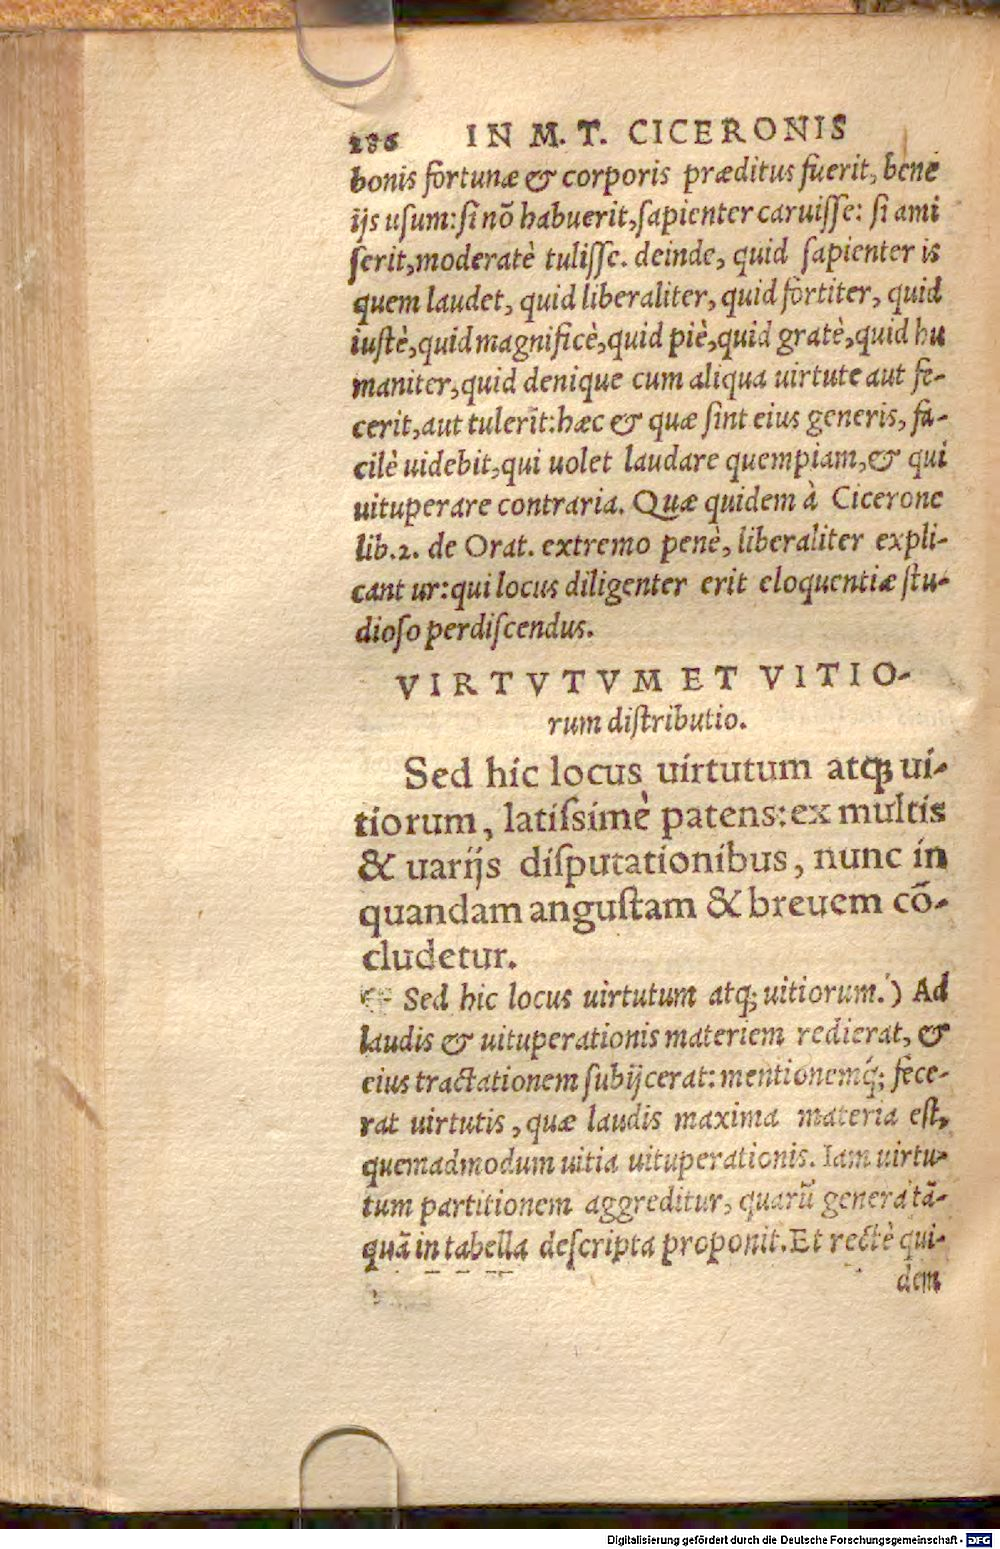 186 IN M. T. CICERONIS
bonis fortunæ & corporis præditus fuerit, bene
ijs usum: si nõ habuerit, sapienter caruisse: si ami
serit, moderatè tulisse. deinde, quid sapienter is
quem laudet, quid liberaliter, quid fortiter, quid
iustè, quid magnificè, quid piè, quid gratè, quid hu
maniter, quid denique cum aliqua uirtute aut fe-
cerit, aut tulerit: hæc & quæ sint eius generis, fa-
cilè uidebit, qui uolet laudare quempiam, & qui
uituperare contraria. Quæ quidem à Cicerone
lib. 2. de Orat. extremo penè, liberaliter expli-
cant ur: qui locus diligenter erit eloquentiæ stu-
dioso perdiscendus.
VIRTVTVM ET VITIO-
rum distributio.
Sed hic locus uirtutum atq; ui-
tiorum, latissimè patens: ex multis
& uarijs disputationibus, nunc in
quandam angustam & breuem cõ-
cludetur.
Sed hic locus uirtutum atq; uitiorum.) Ad
laudis & uituperationis materiem redierat, &
eius tractationem subijcerat: mentionemq́; fece-
rat uirtutis, quæ laudis maxima materia est,
quemadmodum uitia uituperationis. Iam uirtu-
tum partitionem aggreditur, quarũ genera tã-
quã in tabella descripta proponit. Et rectè qui-
dem
Digitalisierung gefördert durch die Deutsche Forschungsgemeinschaft - DFG